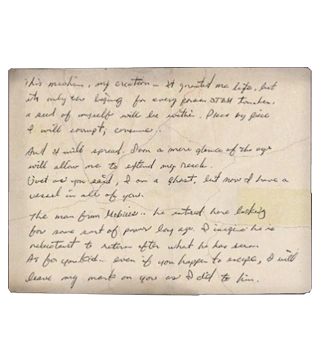 This machine, my creation.. It granted me life, but
its only the begining for every person STEM touches.
a seed of myself will be within. Piece by piece
I will corrupt, consume..
And it will spread. From a mere glance of the eye
will allow me to extend my reach.
Just as you said, I am a ghost, but now I have a
vessel in all of you.
The man from Mobius.. he entered here looking
for some sort of power long ago. I imagine he is
reluctant to return after what he has seen.
As for you Kid.. even if you happen to escape, I will
leave my mark on you as I did to him.